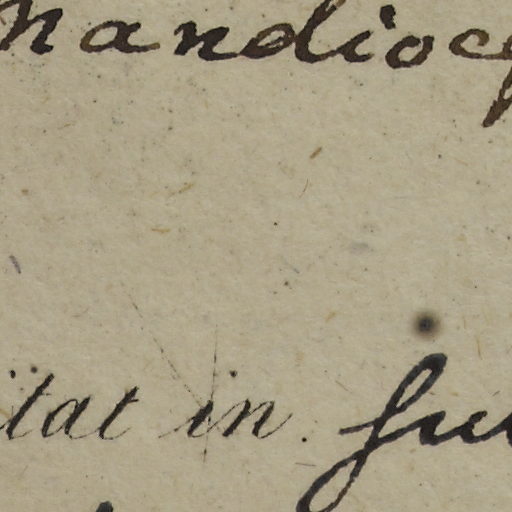 Mandioc
itat in